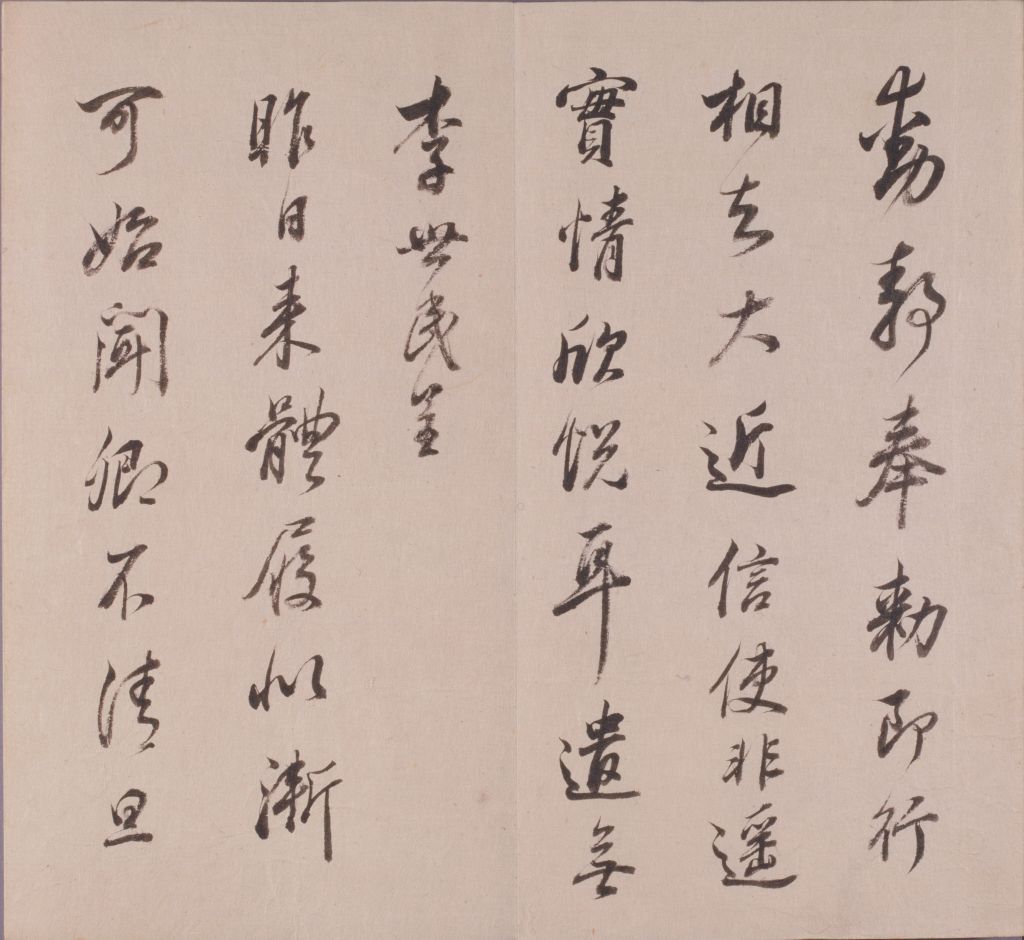 奉勑即行
相去大近信使非遥
實情欣悦耳遣無
李世民呈
昨日来體履似漸
可始聞卿不清旦